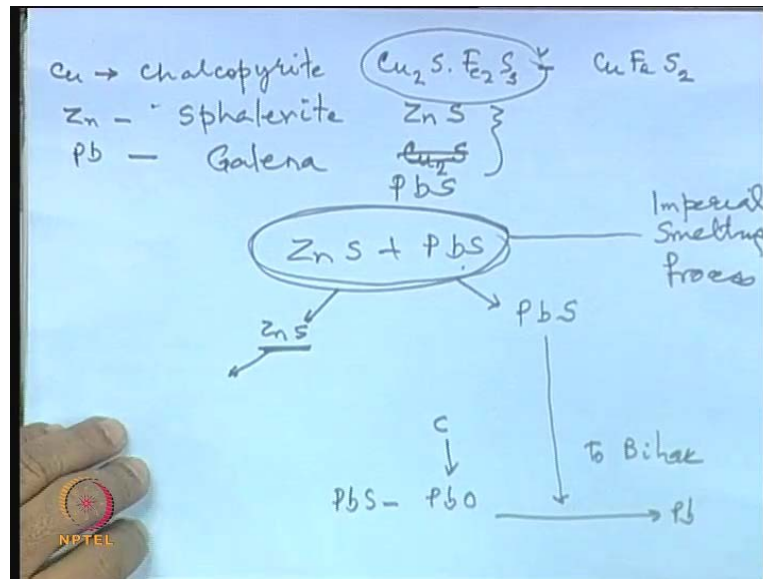 Cu → Chalcopyrite Cu2S.Fe2S3 - CuFeS2
Zn - Sphalerite ZnS
Pb - Galena Cu2S
PbS
Imperial
Smelting
Process
ZnS + PbS
ZnS
PbS
C
To Bihar
PbS - PbO → Pb
NPTEL